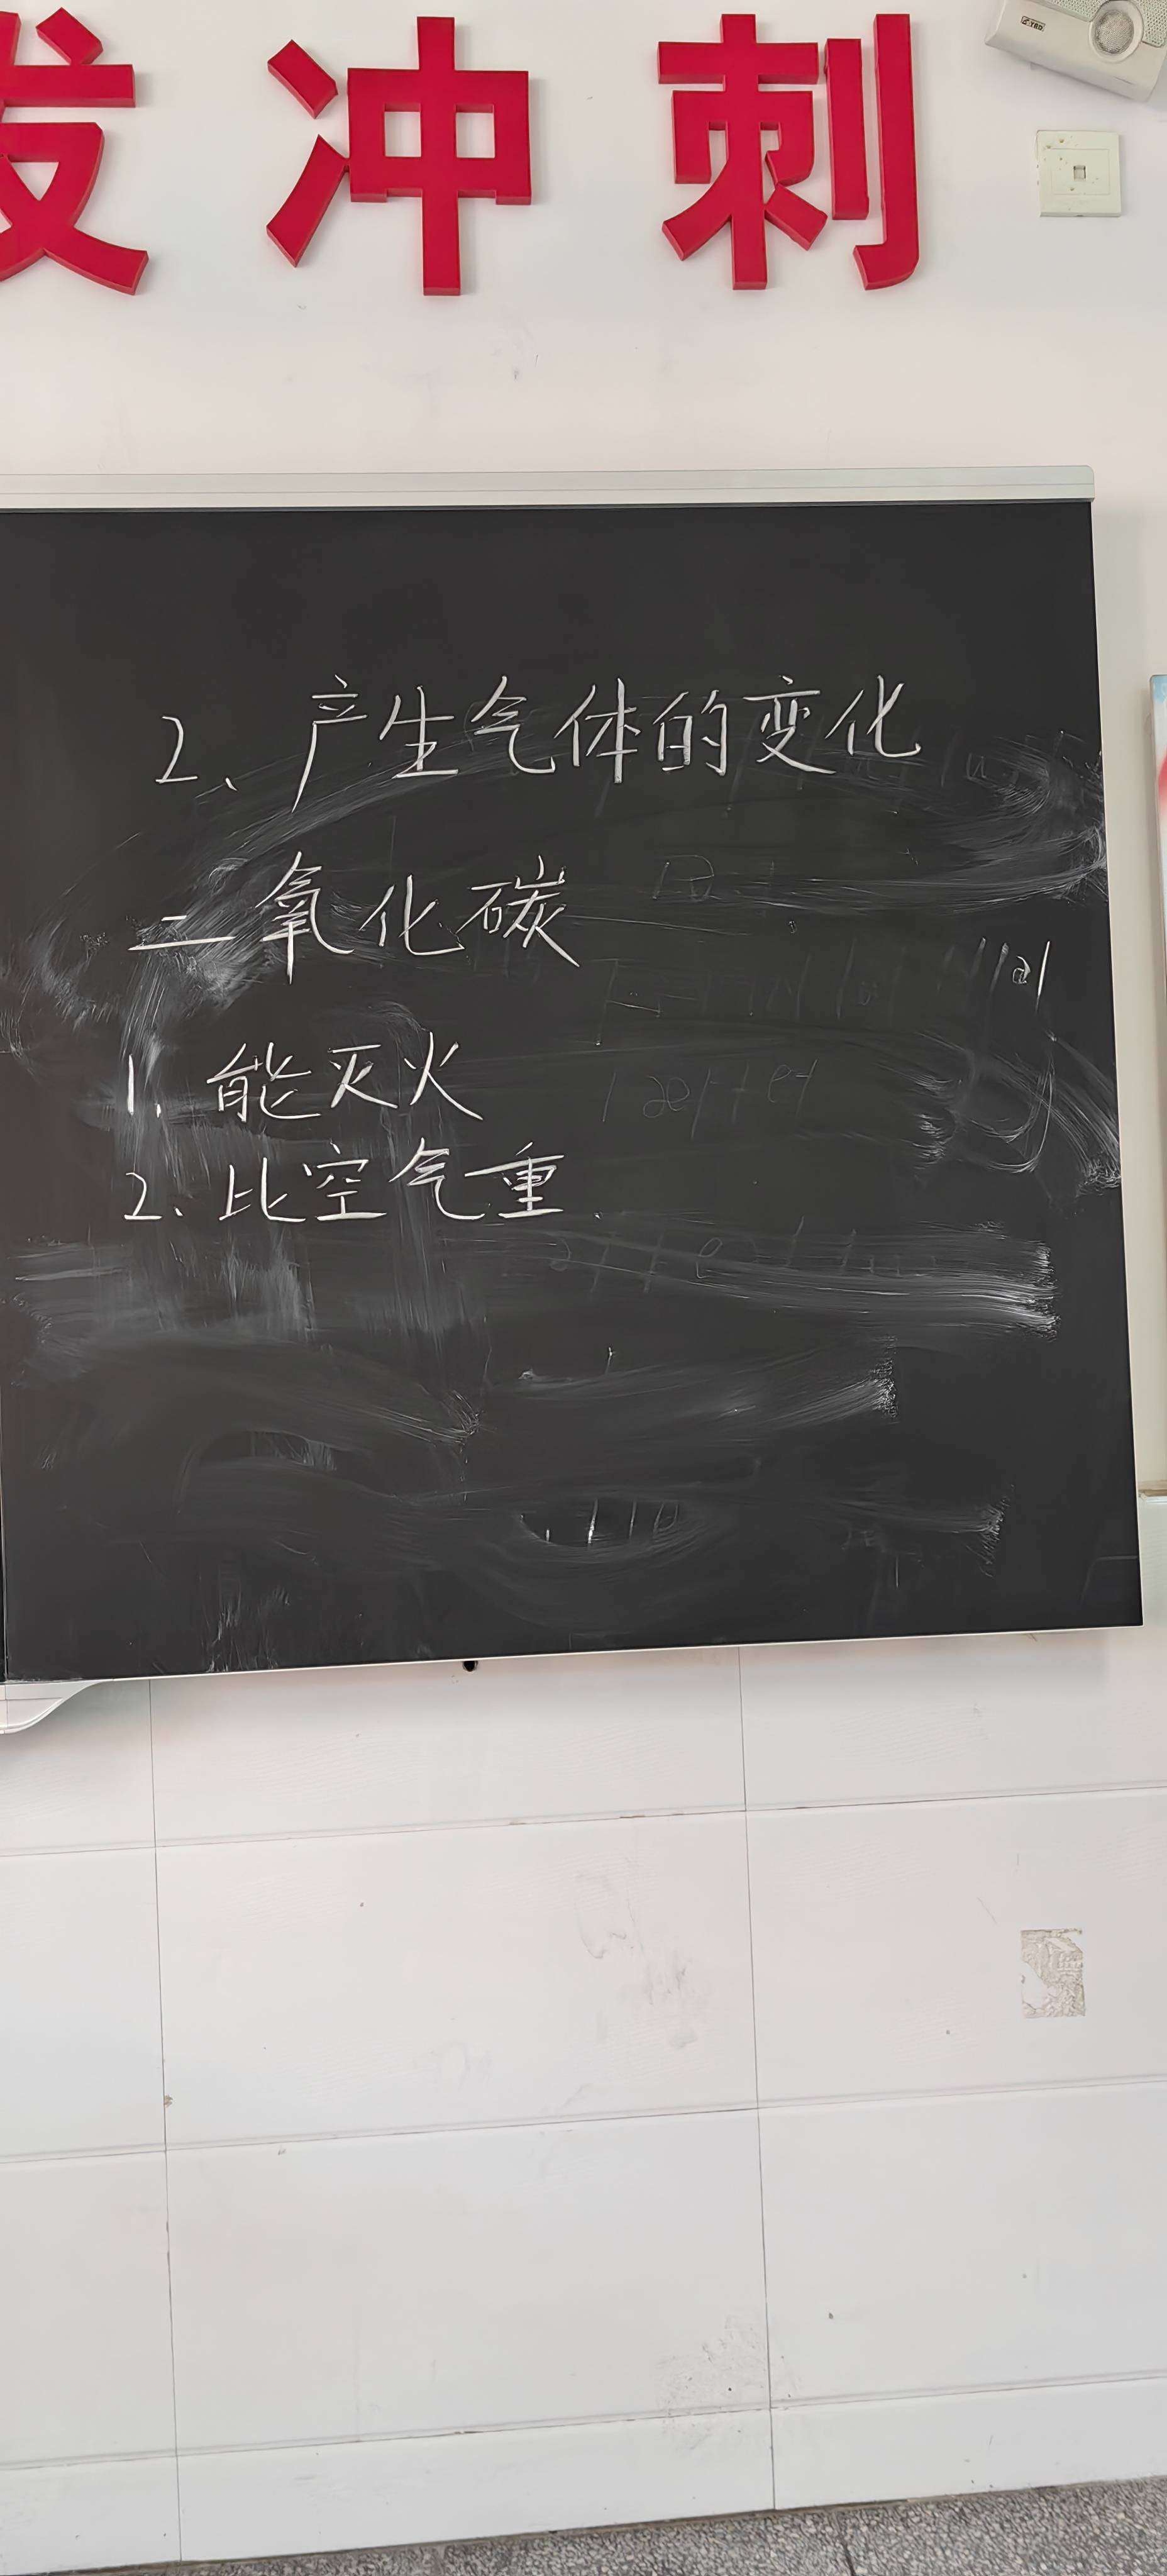 发冲刺
2、产生气体的变化
二氧化碳
1. 能灭火
2、比空气重.